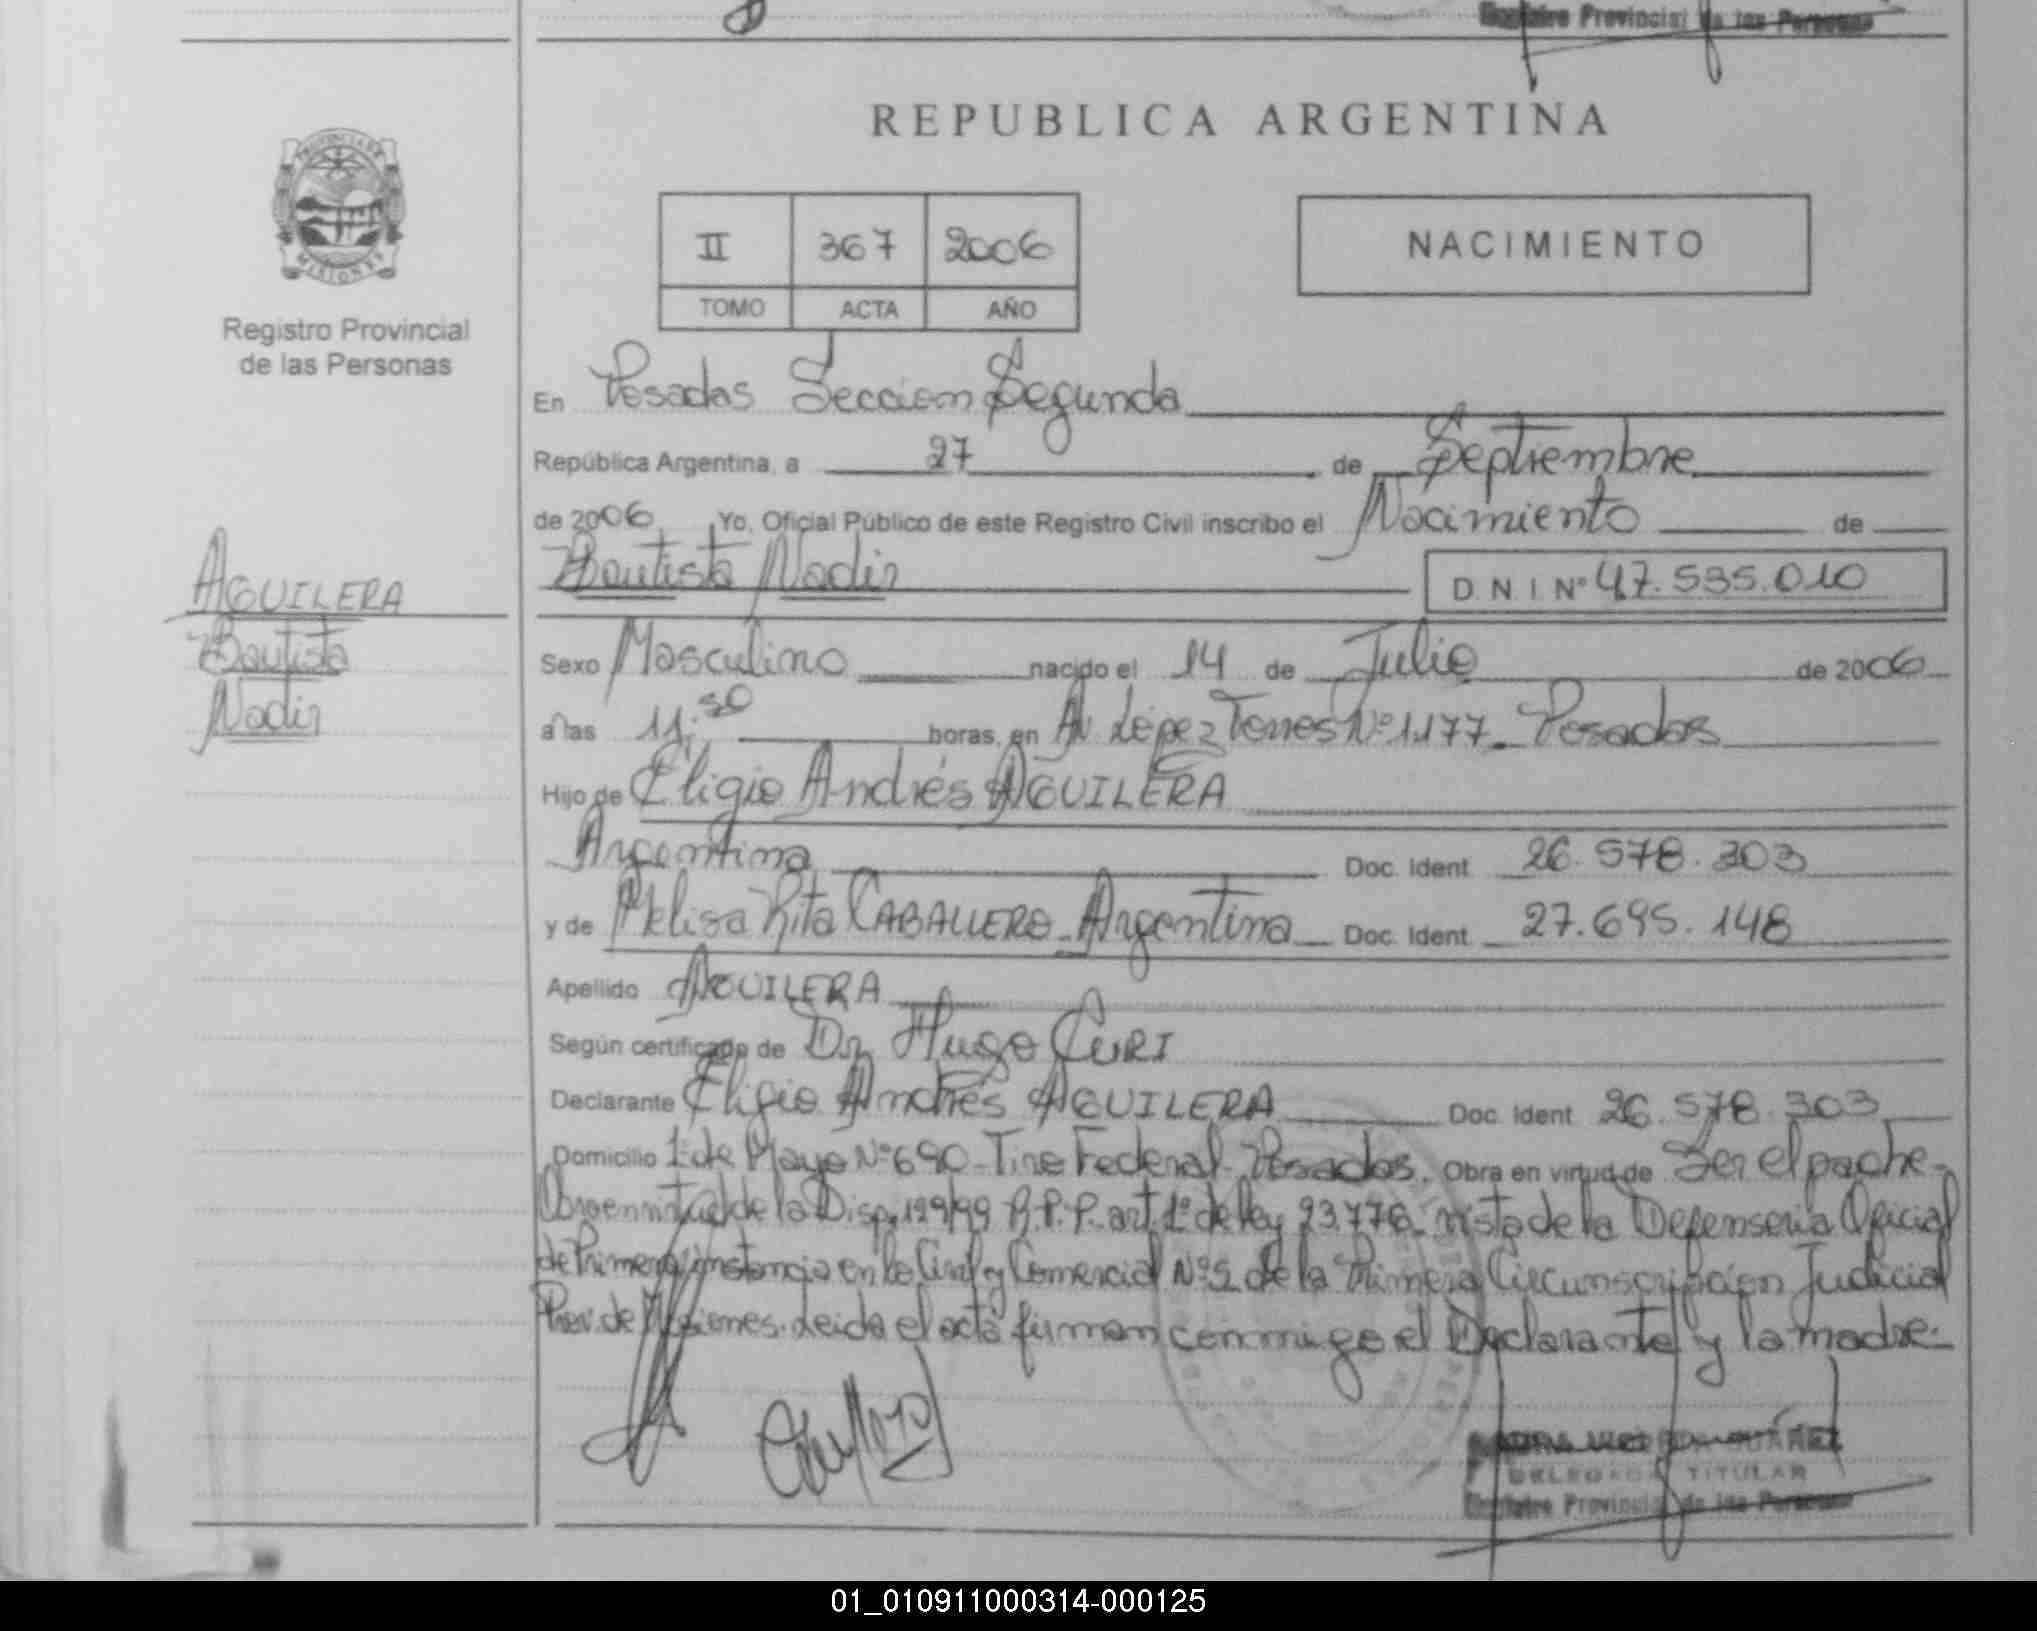 Registro Provincial de las Personas
REPUBLICA ARGENTINA
PROVINCIA DE
MISIONES
Registro Provincial
de las Personas
II 367 2006
TOMO ACTA AÑO
NACIMIENTO
En Posadas Seccion Segunda
República Argentina, a 27 de Septiembre
de 2006 Yo, Oficial Público de este Registro Civil inscribo el Nacimiento de
Bautista Nadir D N I Nº 47.535.010
AGUILERA
Bautista
Nadir
Sexo Masculino nacido el 14 de Julio de 2006
a las 11:30 horas, en Av. López Torres Nº 1.177 - Posadas
Hijo de Eligio Andrés AGUILERA
Argentina Doc. Ident 26.578.303
y de Melisa Rita CABALLERO - Argentina Doc. Ident 27.695.148
Apellido AGUILERA
Según certificado de Dr Hugo CURI
Declarante Eligio Andrés AGUILERA Doc. Ident 26.578.303
Domicilio 1º de Mayo Nº 690 - Tiro Federal - Posadas. Obra en virtud de Ser el padre -
Obra en virtud de la Disp. 199/99 R.P.P. art. 1º de ley 23.776 vista de la Defensoria Oficial
de Primera instancia en lo Civil y Comercial Nº 5 de la Primera Circunscripcion Judicial
Prov. de Misiones. Leida el acta firman conmigo el Declarante y la madre.
DELEGADA TITULAR
Registro Provincial de las Personas
01_010911000314-000125